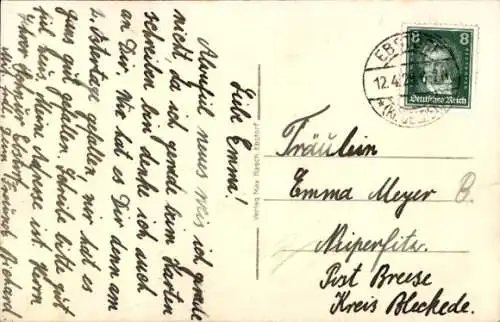 Liebe Emma!
Anviel neues weis ich gerade
nicht, da ich gerade beim Karten
schreiben bin denke ich auch
an Dir. Wie hat es Dir denn am
2. Ostertage gefallen mir hat es
ganz gut gefallen. Schreibe bitte gut
viel hin, Meine Adresse ist Herrn
Richard
8 8
Deutsches Reich
EBSTORF
12.4.2
Verlag Max Rasch Ebstorf
Fräulein
Emma Meyer B.
Nieperfitz.
Post Breese
Kreis Bleckede.